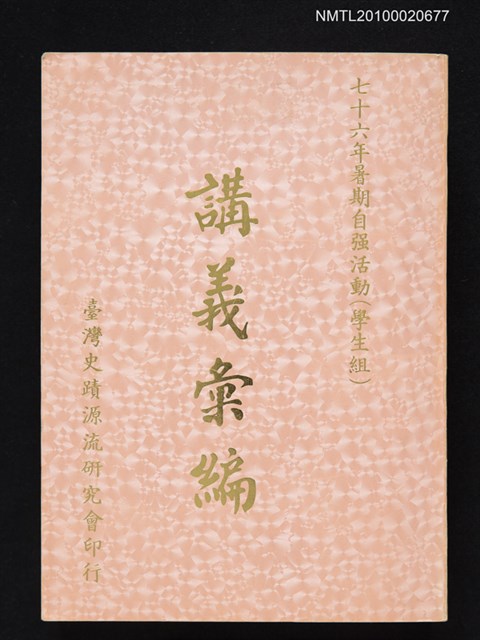 NMTL20100020677
七十六年暑期自强活動(學生組)
講義彙編
臺灣史蹟源流研究會印行